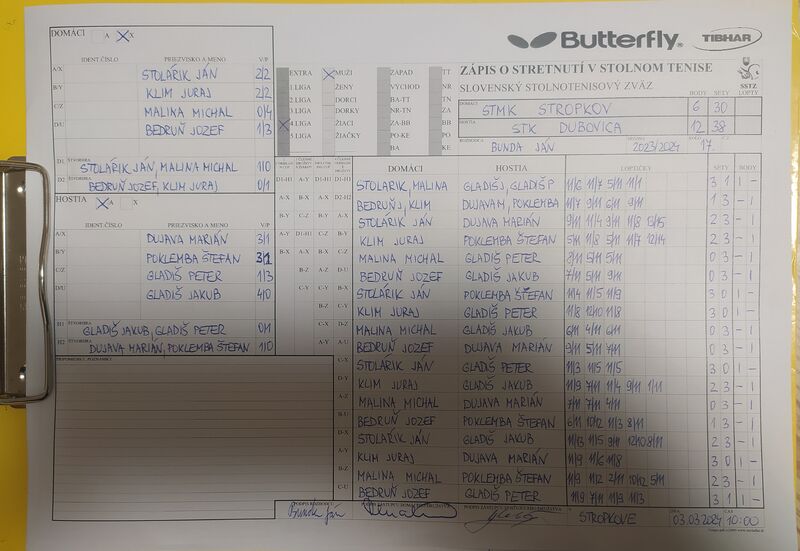 Butterfly
TIBHAR
ZÁPIS O STRETNUTÍ V STOLNOM TENISE
SLOVENSKÝ STOLNOTENISOVÝ ZVÄZ
SSTZ
BODY SETY LOPTY
DOMÁCI STMK STROPKOV 6 30
HOSTIA STK DUBOVICA 12 38
ROZHODCA BUNDA JÁN 2023/2024 17.
DOMÁCI A X
IDENT ČÍSLO PRIEZVISKO A MENO V/P
A/X STOLÁRIK JÁN 2/2
B/Y KLIM JURAJ 2/2
C/Z MALINA MICHAL 0/4
D/U BEDRUŇ JOZEF 1/3
D1 ŠTVORHRA STOLÁRIK JÁN, MALINA MICHAL 1/0
D2 ŠTVORHRA BEDRUŇ JOZEF, KLIM JURAJ 0/1
HOSTIA A X
IDENT ČÍSLO PRIEZVISKO A MENO V/P
A/X DUJAVA MARIÁN 3/1
B/Y POKLEMBA ŠTEFAN 3/1
C/Z GLADIŠ PETER 1/3
D/U GLADIŠ JAKUB 4/0
H1 ŠTVORHRA GLADIŠ JAKUB, GLADIŠ PETER 0/1
H2 DUJAVA MARIÁN, POKLEMBA ŠTEFAN 1/0
EXTRA MUŽI ZÁPAD TT
1.LIGA ŽENY VÝCHOD NR
2.LIGA DORCI BA-TT TN
3.LIGA DORKY NR-TN ZA
4.LIGA ŽIACI ZA-BB BB
5.LIGA ŽIAČKY PO-KE PO
BA KE
DOMÁCI HOSTIA LOPTIČKY SETY BODY
STOLÁRIK, MALINA GLADIŠ J, GLADIŠ P 11/6 11/7 5/11 11/1 3 1 1 -
BEDRUŇ J, KLIM DUJAVA M, POKLEMBA 11/7 9/11 6/11 9/11 1 3 - 1
STOLÁRIK JÁN DUJAVA MARIÁN 9/11 11/4 9/11 11/8 13/15 2 3 - 1
KLIM JURAJ POKLEMBA ŠTEFAN 5/11 11/8 5/11 11/7 12/14 2 3 - 1
MALINA MICHAL GLADIŠ PETER 8/11 5/11 5/11 0 3 - 1
BEDRUŇ JOZEF GLADIŠ JAKUB 7/11 5/11 9/11 0 3 - 1
STOLÁRIK JÁN POKLEMBA ŠTEFAN 11/4 11/5 11/9 3 0 1 -
KLIM JURAJ GLADIŠ PETER 11/8 12/10 11/8 3 0 1 -
MALINA MICHAL GLADIŠ JAKUB 6/11 4/11 6/11 0 3 - 1
BEDRUŇ JOZEF DUJAVA MARIÁN 9/11 5/11 7/11 0 3 - 1
STOLÁRIK JÁN GLADIŠ PETER 11/3 11/5 11/5 3 0 1 -
KLIM JURAJ GLADIŠ JAKUB 11/9 7/11 11/4 9/11 1/11 2 3 - 1
MALINA MICHAL DUJAVA MARIÁN 7/11 7/11 4/11 0 3 - 1
BEDRUŇ JOZEF POKLEMBA ŠTEFAN 6/11 10/12 11/3 8/11 1 3 - 1
STOLÁRIK JÁN GLADIŠ JAKUB 11/13 11/5 9/11 12/10 8/11 2 3 - 1
KLIM JURAJ DUJAVA MARIÁN 11/9 11/6 11/8 3 0 1 -
MALINA MICHAL POKLEMBA ŠTEFAN 11/9 11/2 2/11 10/12 5/11 2 3 - 1
BEDRUŇ JOZEF GLADIŠ PETER 11/9 7/11 11/3 11/3 3 1 1 -
PRIPOMIENKY, POZNÁMKY
PODPIS ROZHODCU
Bunda Ján
V STROPKOVE
DŇA 03.03.2024
ČAS 10:00